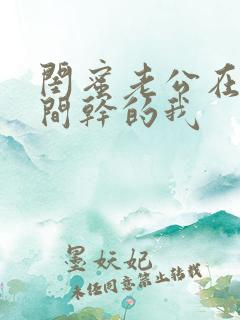 閨蜜老公在
間幹的我
墨妖妃
未经同意禁止转载